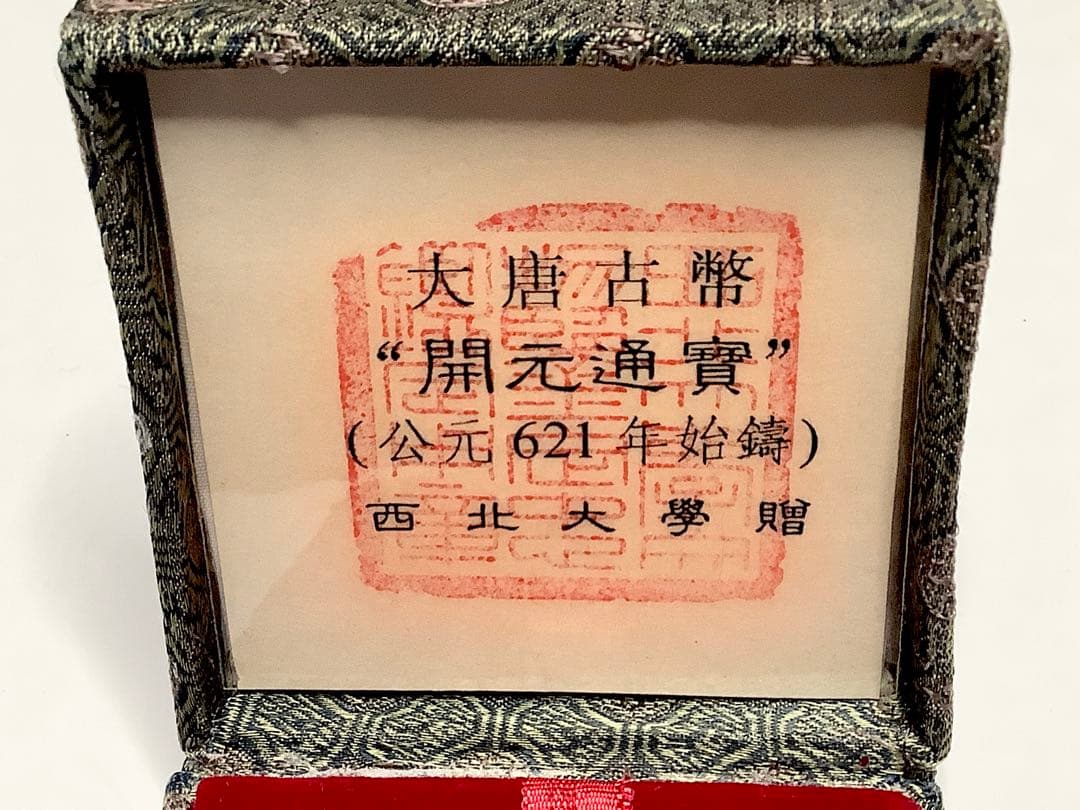 大唐古幣
“開元通寶”
(公元621年始鑄)
西北大學贈